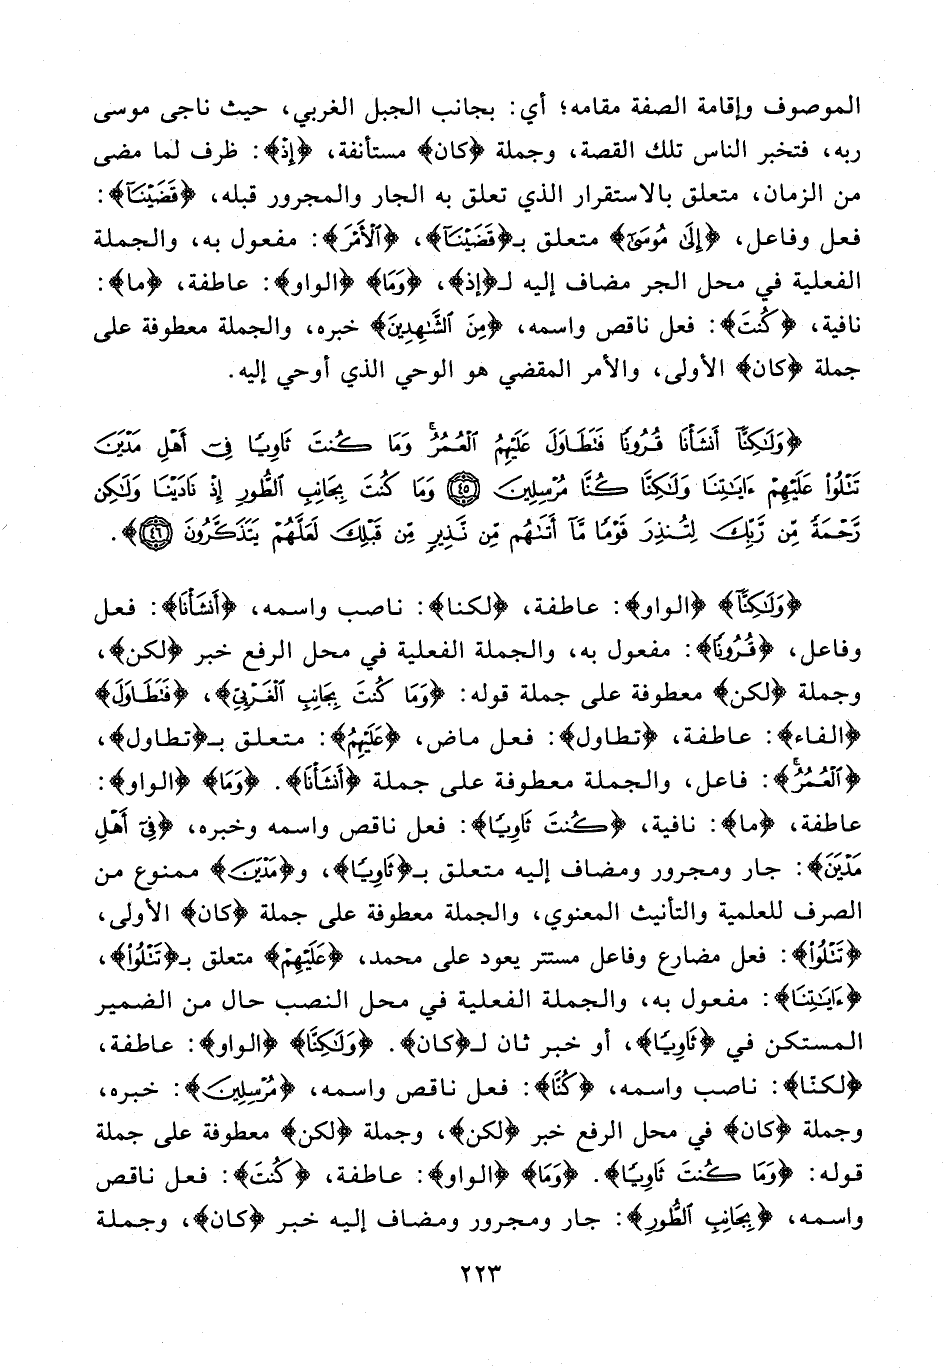 الموصوف وإقامة الصفة مقامه؛ أي: بجانب الجبل الغربي، حيث ناجى موسى
ربه، فتخبر الناس تلك القصة، وجملة ﴿كان﴾ مستأنفة، ﴿إِذْ﴾: ظرف لما مضى
من الزمان، متعلق بالاستقرار الذي تعلق به الجار والمجرور قبله، ﴿قَضَيْنَآ﴾:
فعل وفاعل، ﴿إِلَىٰ مُوسَى﴾ متعلق بـ﴿قَضَيْنَآ﴾، ﴿ٱلْأَمْرَ﴾: مفعول به، والجملة
الفعلية في محل الجر مضاف إليه لـ﴿إذ﴾، ﴿وَمَا﴾ ﴿الواو﴾: عاطفة، ﴿ما﴾:
نافية، ﴿كُنتَ﴾: فعل ناقص واسمه، ﴿مِنَ ٱلشَّٰهِدِينَ﴾ خبره، والجملة معطوفة على
جملة ﴿كان﴾ الأولى، والأمر المقضي هو الوحي الذي أوحي إليه.
﴿وَلَٰكِنَّآ أَنشَأْنَا قُرُونًا فَتَطَاوَلَ عَلَيْهِمُ ٱلْعُمُرُۚ وَمَا كُنتَ ثَاوِيًا فِىٓ أَهْلِ مَدْيَنَ
تَتْلُوا۟ عَلَيْهِمْ ءَايَٰتِنَا وَلَٰكِنَّا كُنَّا مُرْسِلِينَ ۝٤٥ وَمَا كُنتَ بِجَانِبِ ٱلطُّورِ إِذْ نَادَيْنَا وَلَٰكِن
رَّحْمَةً مِّن رَّبِّكَ لِتُنذِرَ قَوْمًا مَّآ أَتَىٰهُم مِّن نَّذِيرٍ مِّن قَبْلِكَ لَعَلَّهُمْ يَتَذَكَّرُونَ ۝٤٦﴾.
﴿وَلَٰكِنَّآ﴾ ﴿الواو﴾: عاطفة، ﴿لكنا﴾: ناصب واسمه، ﴿أَنشَأْنَا﴾: فعل
وفاعل، ﴿قُرُونًا﴾: مفعول به، والجملة الفعلية في محل الرفع خبر ﴿لكن﴾،
وجملة ﴿لكن﴾ معطوفة على جملة قوله: ﴿وَمَا كُنتَ بِجَانِبِ ٱلْغَرْبِىِّ﴾، ﴿فَتَطَاوَلَ﴾
﴿الفاء﴾: عاطفة، ﴿تطاول﴾: فعل ماض، ﴿عَلَيْهِمُ﴾: متعلق بـ﴿تطاول﴾،
﴿ٱلْعُمُرُۚ﴾: فاعل، والجملة معطوفة على جملة ﴿أَنشَأْنَا﴾. ﴿وَمَا﴾ ﴿الواو﴾:
عاطفة، ﴿ما﴾: نافية، ﴿كُنتَ ثَاوِيًا﴾: فعل ناقص واسمه وخبره، ﴿فِىٓ أَهْلِ
مَدْيَنَ﴾: جار ومجرور ومضاف إليه متعلق بـ﴿ثَاوِيًا﴾، و﴿مَدْيَنَ﴾ ممنوع من
الصرف للعلمية والتأنيث المعنوي، والجملة معطوفة على جملة ﴿كان﴾ الأولى،
﴿تَتْلُوا۟﴾: فعل مضارع وفاعل مستتر يعود على محمد، ﴿عَلَيْهِمْ﴾ متعلق بـ﴿تَتْلُوا۟﴾،
﴿ءَايَٰتِنَا﴾: مفعول به، والجملة الفعلية في محل النصب حال من الضمير
المستكن في ﴿ثَاوِيًا﴾، أو خبر ثان لـ﴿كان﴾. ﴿وَلَٰكِنَّا﴾ ﴿الواو﴾: عاطفة،
﴿لكنّا﴾: ناصب واسمه، ﴿كُنَّا﴾: فعل ناقص واسمه، ﴿مُرْسِلِينَ﴾: خبره،
وجملة ﴿كان﴾ في محل الرفع خبر ﴿لكن﴾، وجملة ﴿لكن﴾ معطوفة على جملة
قوله: ﴿وَمَا كُنتَ ثَاوِيًا﴾. ﴿وَمَا﴾ ﴿الواو﴾: عاطفة، ﴿كُنتَ﴾: فعل ناقص
واسمه، ﴿بِجَانِبِ ٱلطُّورِ﴾: جار ومجرور ومضاف إليه خبر ﴿كان﴾، وجملة
٢٢٣